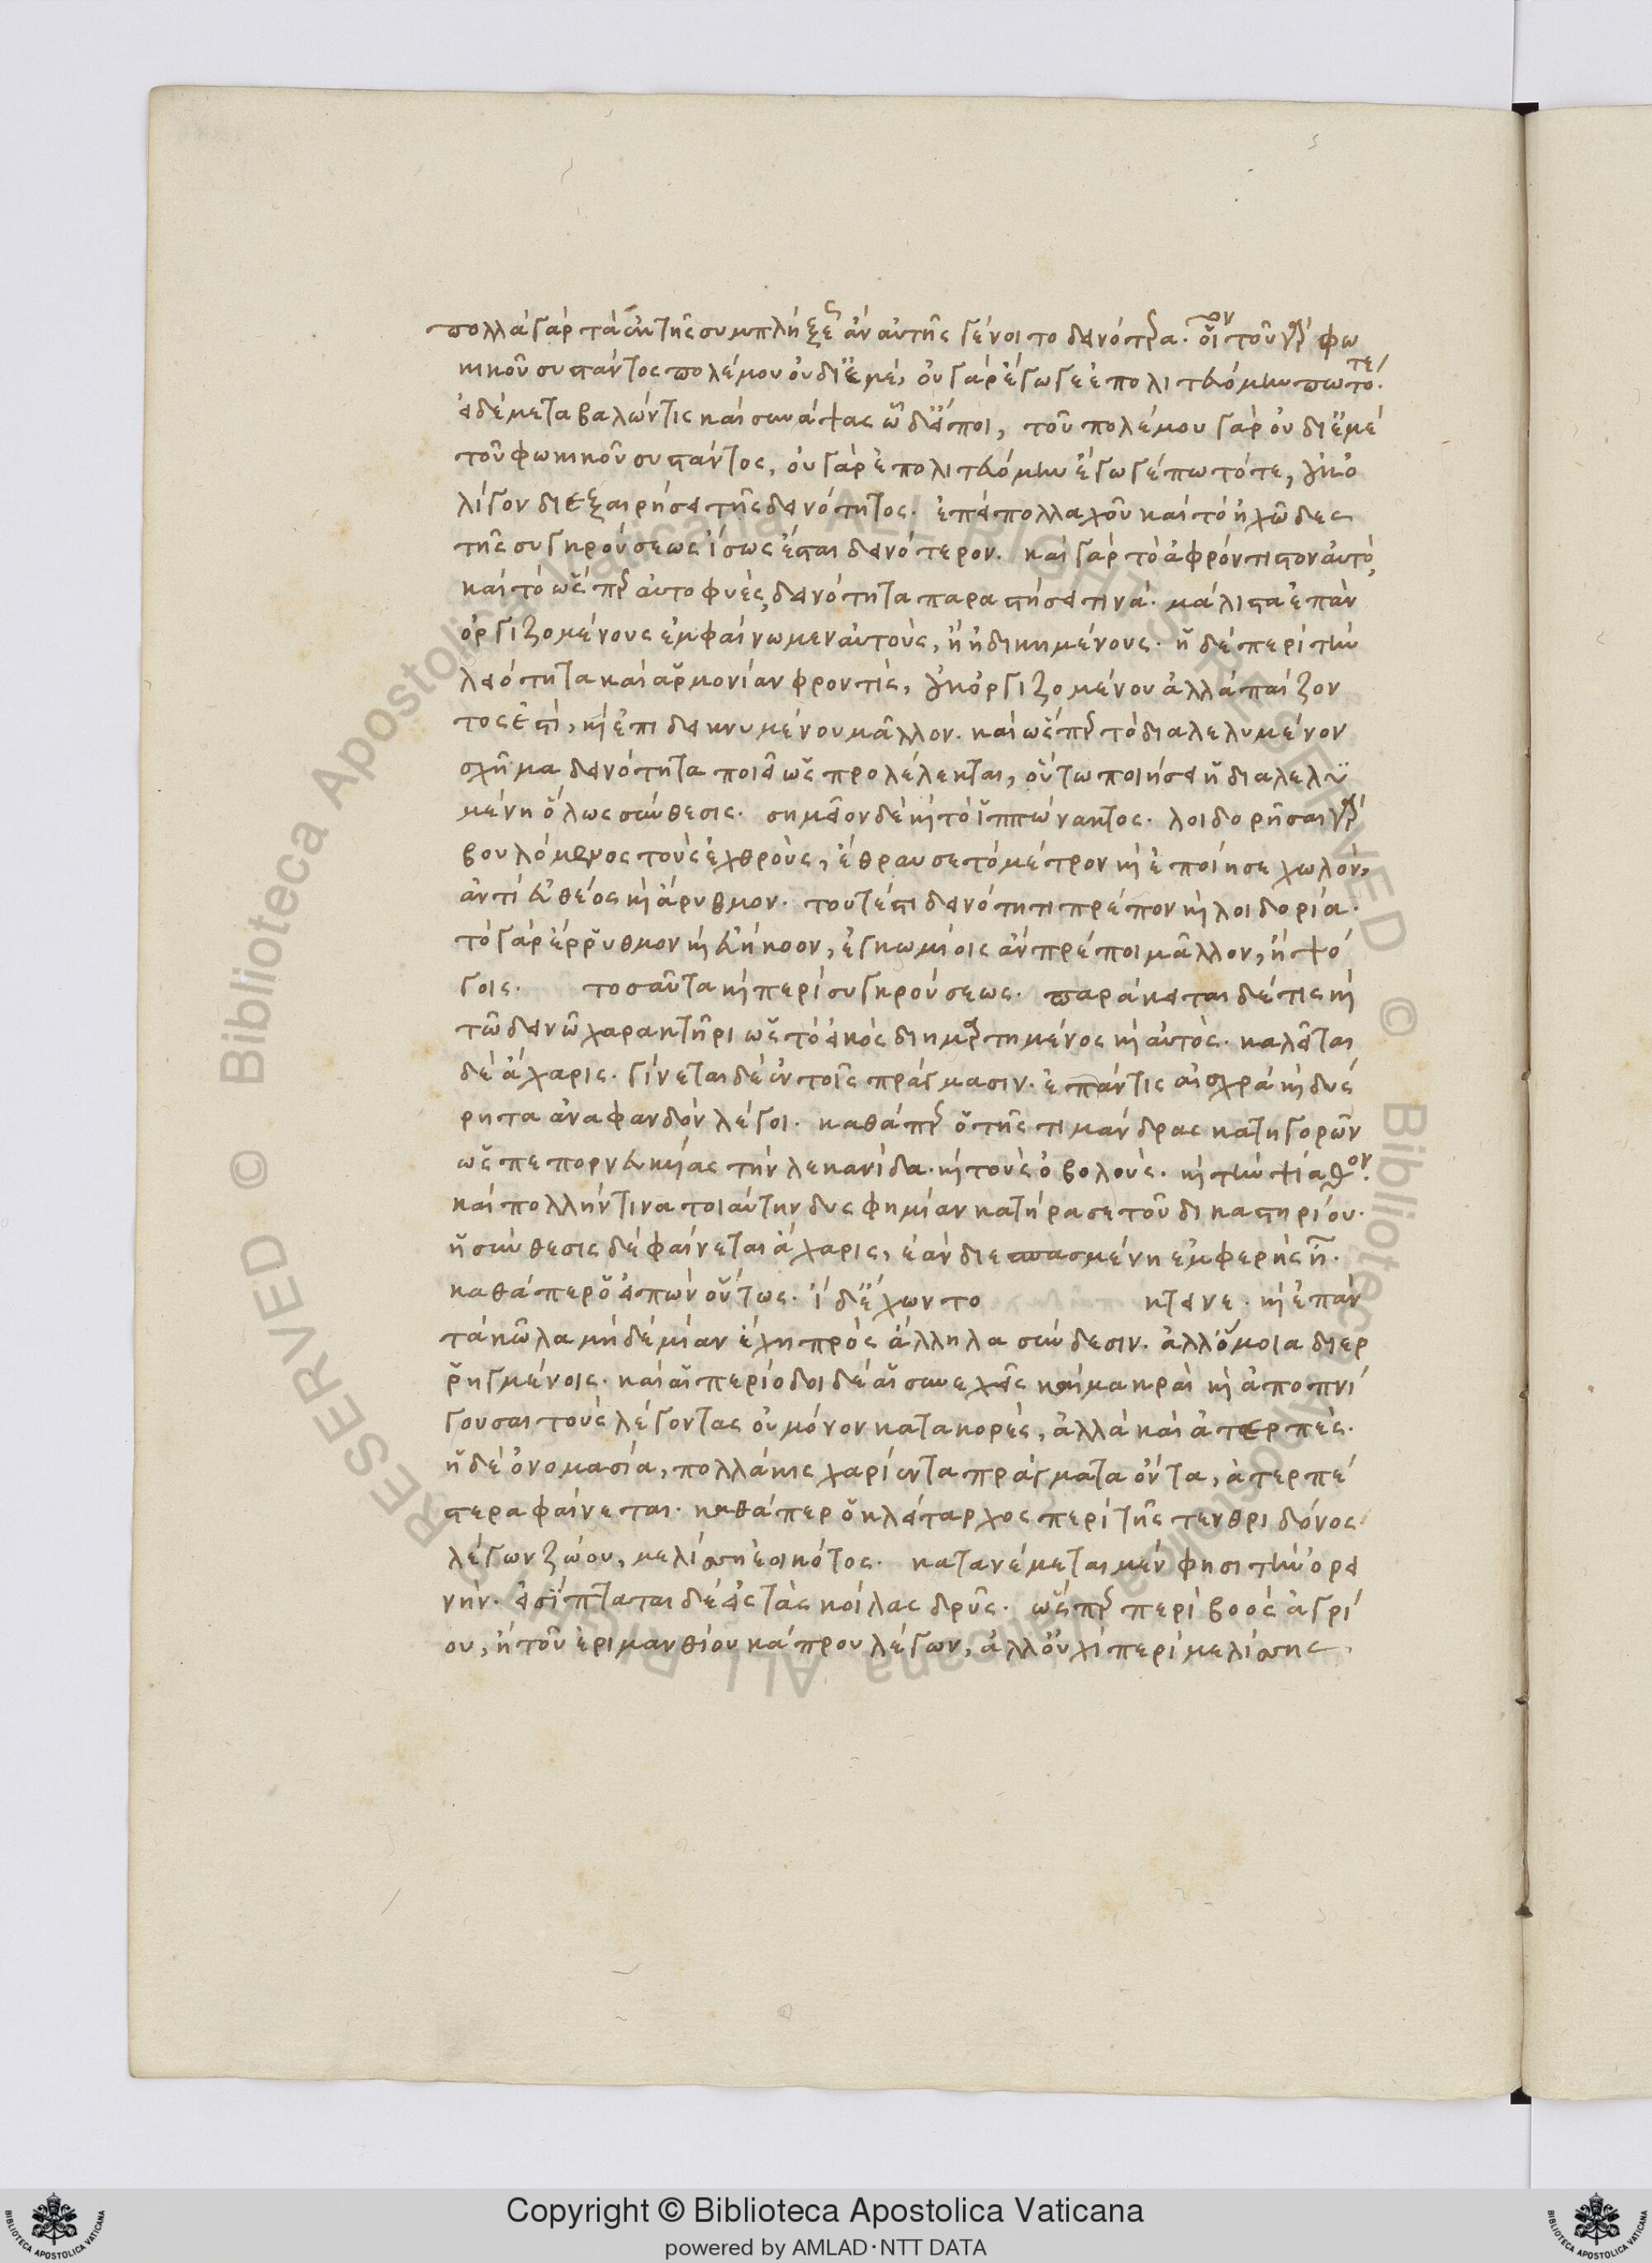 πολλὰ γὰρ τὰ ἐκ τῆς συμπλήξεως ἂν αὐτῆς γένοιτο δεινότερα. οἷον τοῦ γὰρ φω
κικοῦ συστάντος πολέμου οὐ δι' ἐμέ, οὐ γὰρ ἔγωγε ἐπολιτευόμην πω τότε.
εἰ δὲ μεταβαλών τις καὶ συνάψας ὧδ' εἴποι, τοῦ πολέμου γὰρ οὐ δι' ἐμὲ
τοῦ φωκικοῦ συστάντος, οὐ γὰρ ἐπολιτευόμην ἔγωγέ πω τότε, οὐκ ὀ
λίγον διεξαιρήσει τῆς δεινότητος. ἐπεὶ πολλαχοῦ καὶ τὸ ἠχῶδες
τῆς συγκρούσεως ἴσως ἔσται δεινότερον. καὶ γὰρ τὸ ἀφρόντιστον αὐτὸ,
καὶ τὸ ὥσπερ αὐτοφυὲς, δεινότητα παραστήσει τινά. μάλιστα ἐπὰν
ὀργιζομένους ἐμφαίνωμεν αὐτοὺς, ἢ ἠδικημένους. ἡ δὲ περὶ τὴν
λειότητα καὶ ἁρμονίαν φροντὶς, οὐκ ὀργιζομένου ἀλλὰ παίζον
τος ἐστὶ, καὶ ἐπιδεικνυμένου μᾶλλον. καὶ ὥσπερ τὸ διαλελυμένον
σχῆμα δεινότητα ποιεῖ ὡς προλέλεκται, οὕτω ποιήσει ἡ διαλελυ
μένη ὅλως σύνθεσις. σημεῖον δὲ καὶ τὸ ἱππώνακτος. λοιδορῆσαι γὰρ
βουλόμενος τοὺς ἐχθροὺς, ἔθραυσε τὸ μέτρον καὶ ἐποίησε χωλὸν,
ἀντὶ εὐθέος καὶ ἄρυθμον. τουτέστι δεινότητι πρέπον καὶ λοιδορία.
τὸ γὰρ ἔρρυθμον καὶ εὐήκοον, ἐγκωμίοις ἂν πρέποι μᾶλλον, ἢ ψό
γοις. τοσαῦτα καὶ περὶ συγκρούσεως. παράκειται δέ τις καὶ
τῶ δεινῶ χαρακτῆρι ὡς τὸ εἰκὸς διημαρτημένος καὶ αὐτὸς. καλεῖται
δὲ ἄχαρις. γίνεται δὲ ἐν τοῖς πράγμασιν. ἐπάν τις αἰσχρὰ καὶ δυσ
ρητα ἀναφανδὸν λέγοι. καθάπερ ὁ τῆς τιμάνδρας κατηγορῶν
ὡς πεπορνευκυίας τὴν λεκανίδα. καὶ τοὺς ὀβολοὺς. καὶ τὴν ψίαθον.
καὶ πολλήν τινα τοιαύτην δυσφημίαν κατήρασε τοῦ δικαστηρίου.
ἡ σύνθεσις δὲ φαίνεται ἄχαρις, ἐὰν διεσπασμένη ἐμφερὴς ἦ.
καθάπερ ὁ εἰπὼν οὕτως. ἰδ' ἔχων το κτεινε. καὶ ἐπὰν
τὰ κῶλα μηδεμίαν ἔχη πρὸς ἄλληλα σύνδεσιν. ἀλλ' ὅμοια διερ
ρηγμένοις. καὶ αἱ περίοδοι δὲ αἱ συνεχεῖς καὶ μακραὶ καὶ ἀποπνί
γουσαι τοὺς λέγοντας οὐ μόνον κατακορὲς, ἀλλὰ καὶ ἀτερπὲς.
ἡ δὲ ὀνομασία, πολλάκις χαρίεντα πράγματα ὄντα, ἀτερπέ
στερα φαίνεται. καθάπερ ὁ κλείταρχος περὶ τῆς τενθριδόνος
λέγων ζώου, μελίσση ἐοικότος. κατανέμεται μέν φησι τὴν ὀρει
νήν. εἰσίπταται δὲ εἰς τὰς κοίλας δρῦς. ὥσπερ περὶ βοὸς ἀγρί
ου, ἢ τοῦ ἐριμανθίου κάπρου λέγων, ἀλλ' οὐχὶ περὶ μελίσσης.
© Biblioteca Apostolica Vaticana ALL RIGHTS RESERVED
© Biblioteca Apostolica Vaticana ALL RIGHTS RESERVED
Copyright © Biblioteca Apostolica Vaticana
powered by AMLAD·NTT DATA
BIBLIOTECA APOSTOLICA VATICANA
BIBLIOTECA APOSTOLICA VATICANA